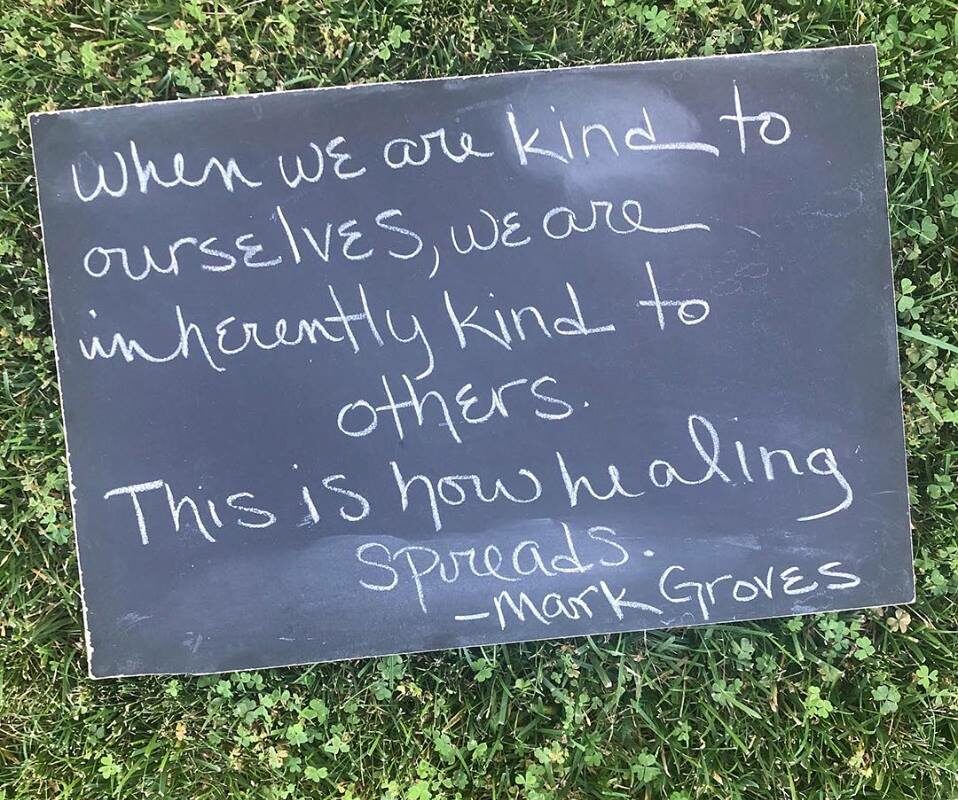 When we are kind to
ourselves, we are
inherently kind to
others.
This is how healing
spreads.
-Mark Groves